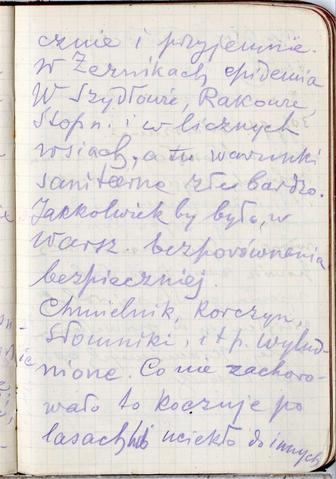 cznie i przyjemnie.
W Żernikach epidemia
W Szydłowie, Rakowie,
Stopn. i w licznych
wsiach, a tu warunki
sanitarne złe bardzo.
Jakkolwiek by było, w
Warsz. bezporównania
bezpieczniej.
Chmielnik, Korczyn,
Słomniki, i t p. wylud-
nione. Co nie zachoro-
wało to koczuje po
lasach, lub uciekło do innych